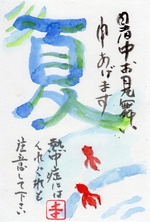 暑中お見舞い
申しあげます
夏
熱中症には
くれぐれも
注意して下さい